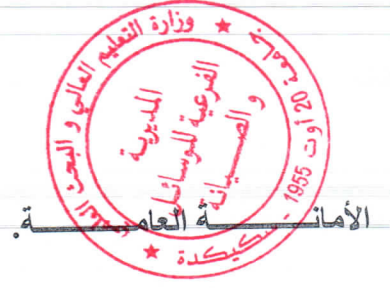 وزارة التعليم العالي و البحث العلمي
جامعة 20 أوت 1955 - سكيكدة
المديرية
الفرعية للوسائل
و الصيانة
الأمانــــــــة العامــــــــة.